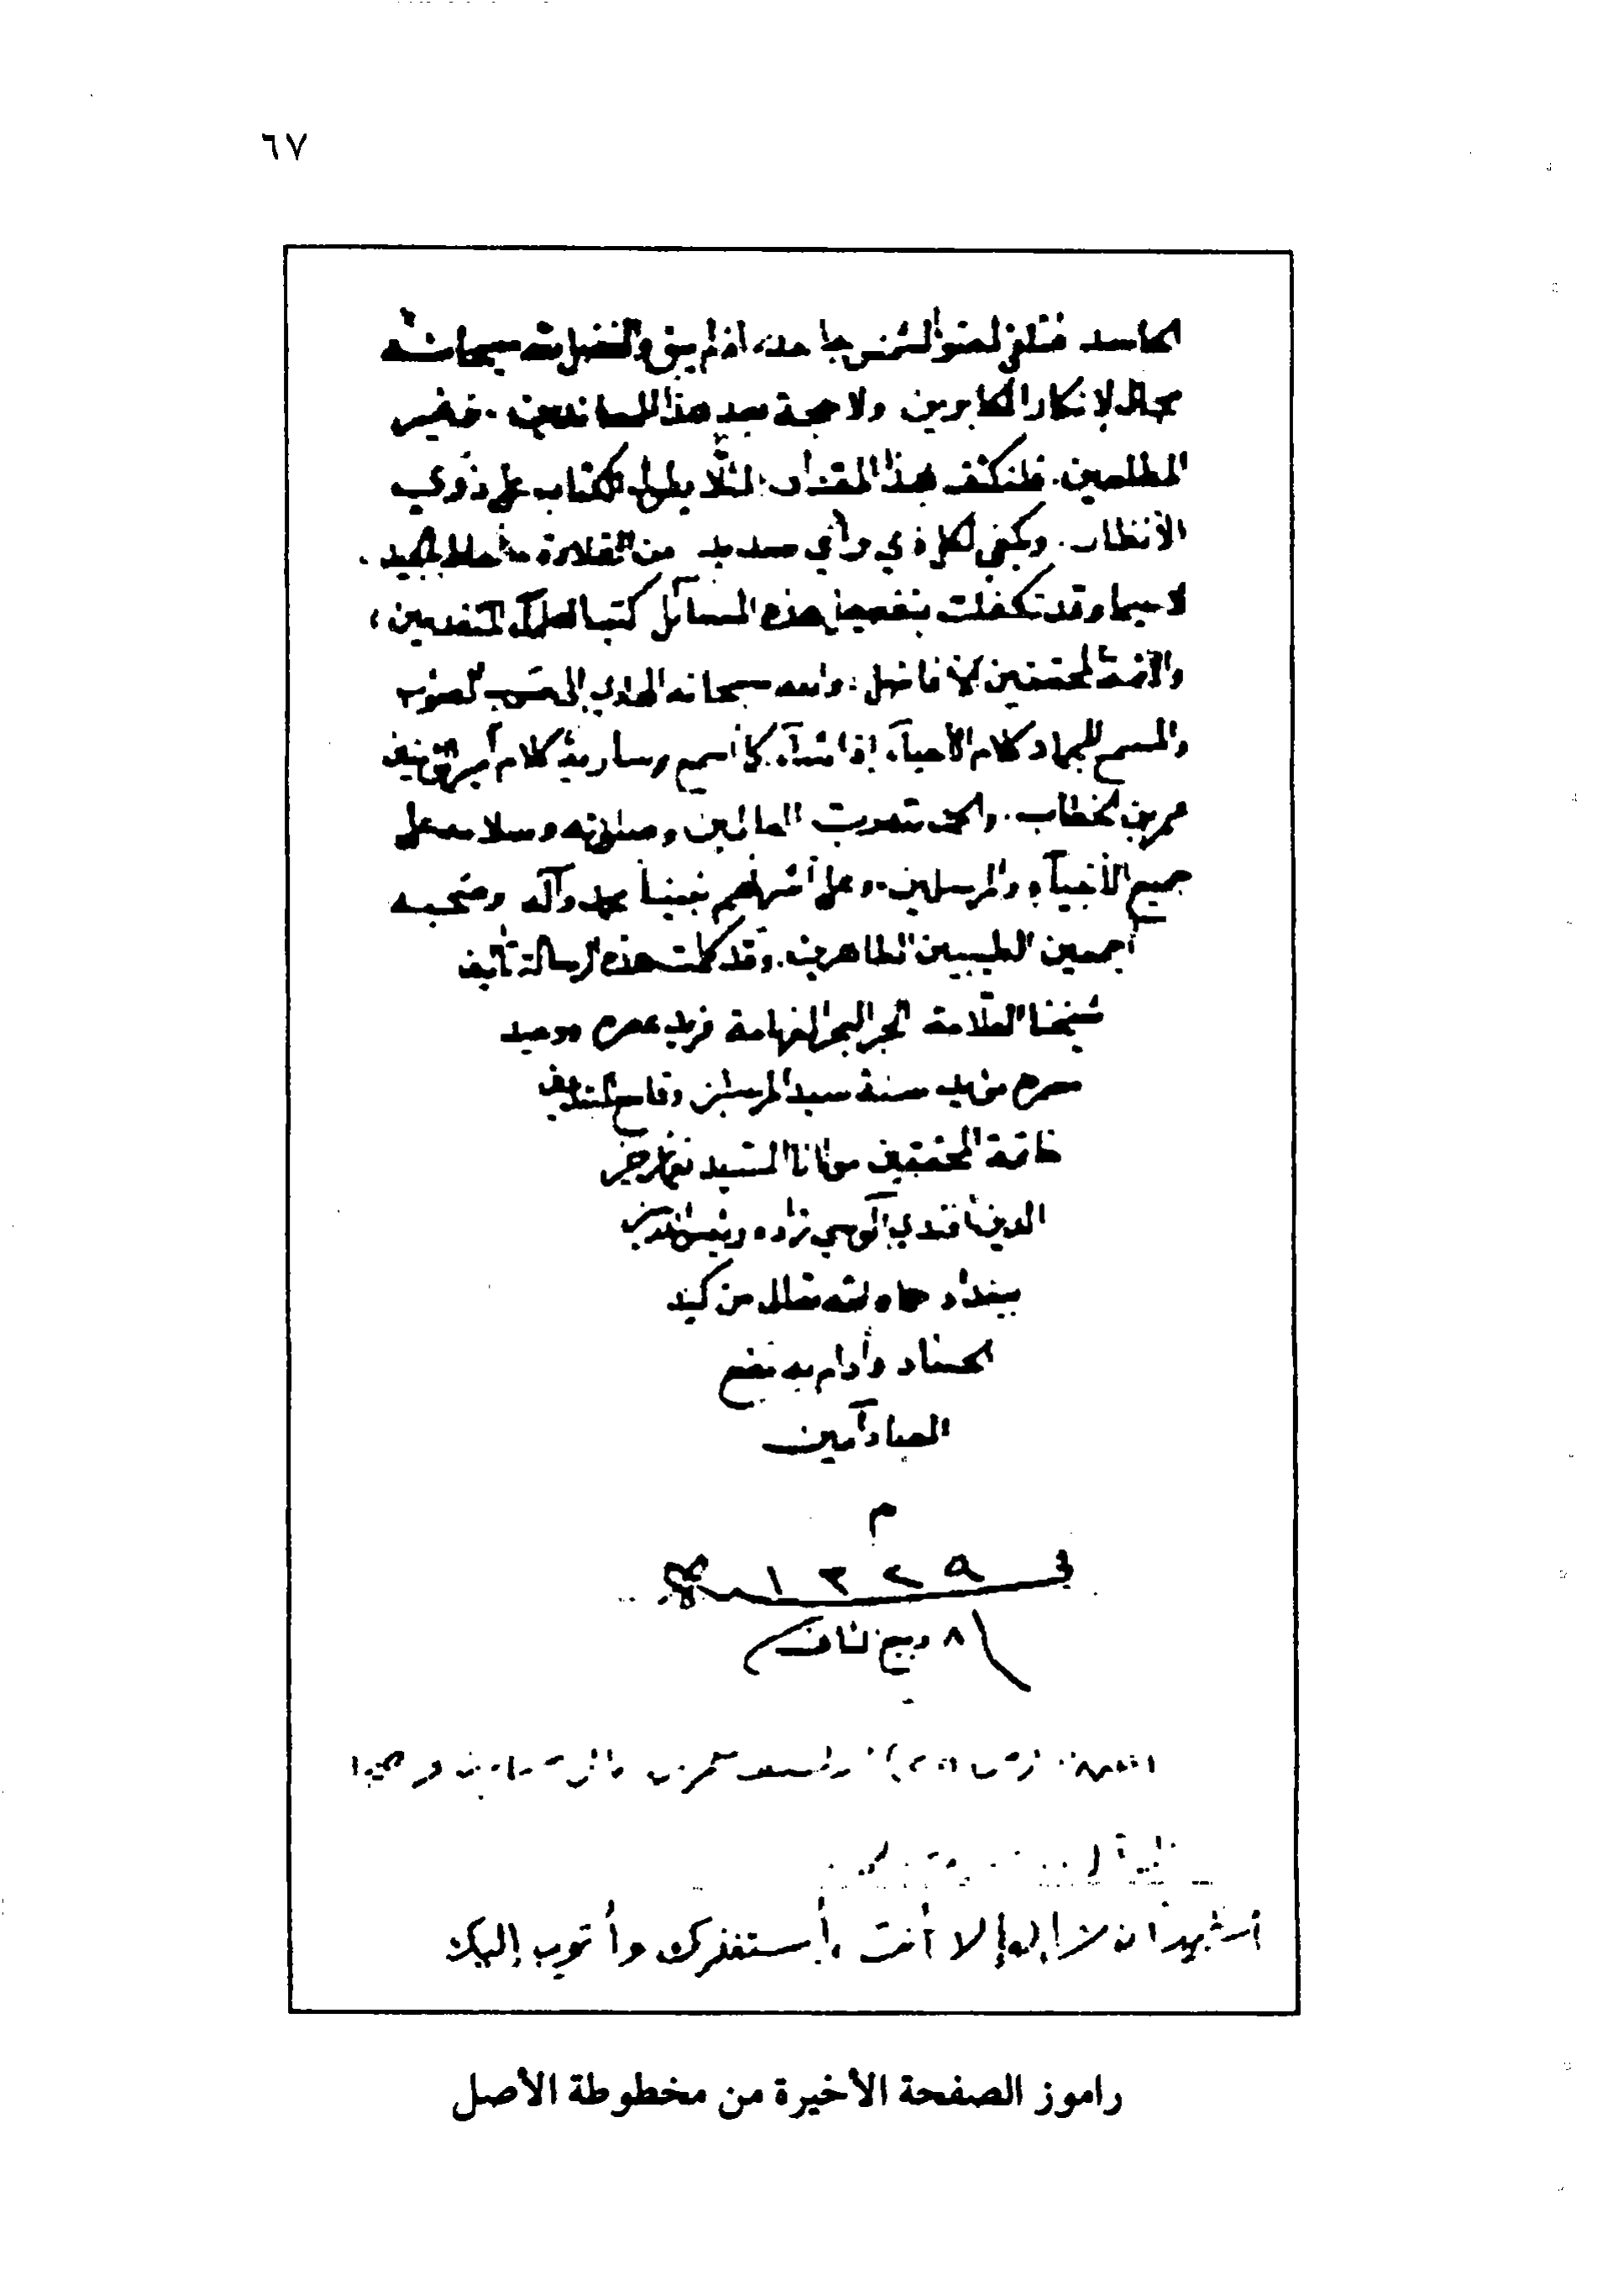 ٦٧
الحاسد فتلفى لضوء الشمس جاحد، إذ لم يبق والفضل لله سبحانه
مجال لإنكار المكابرين ولا حجة بعد هذا للمعاندين. فضير
المطلعين. فلنكتف بهذا المقدار، لئلا يطول الكتاب على ذوي
الأنظار. ويكفي لكل ذي رأي سديد من القلادة ما أحاط بالجيد.
لا سيما وقد تكفلت بتفصيل هذه المسائل كتب العلماء المتقدمين،
والأئمة المحققين الأفاضل، والله سبحانه الهادي إلى صوب الصواب
والمسمع للجماد كلام الأحياء، إذا شاء. كما أسمع سارية كلام أمير المؤمنين
عمر بن الخطاب. والحمد لله رب العالمين وصلاته وسلامه على
جميع الأنبياء والمرسلين. وعلى أشرفهم نبينا محمد وآله وصحبه
أجمعين الطيبين الطاهرين. وقد كملت هذه الرسالة تأليف
شيخنا العلامة الحبر البحر الفهامة فريد عصره ووحيد
مصره مؤيد سنة سيد المرسلين وقامع المبتدعين
خاتمة المحققين مولانا السيد نعمان خير
الدين أفندي آلوسي زاده رئيس المدرسين
ببغداد حماه الله تعالى من كيد
الحساد وأدام به نفع
العباد آمين
م
في ١٣٢٩
٨ ربيع الثاني
أشهد أن لا إله إلا أنت أستغفرك وأتوب إليك
راموز الصفحة الأخيرة من مخطوطة الأصل